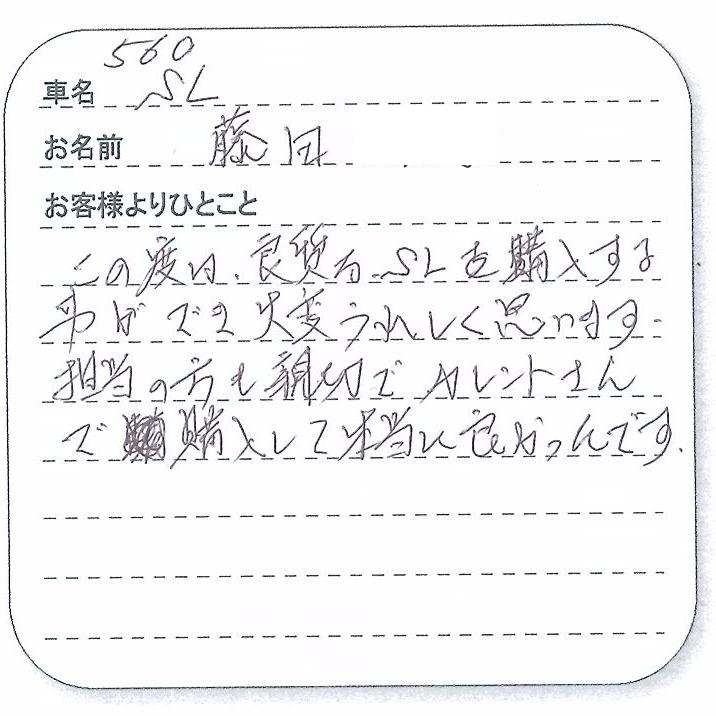 560
車名 SL
お名前 藤田
お客様よりひとこと
この度は、良質な SLを購入する
事ができ大変うれしく思います。
担当の方も親切でカレントさん
で購入して本当に良かったです。